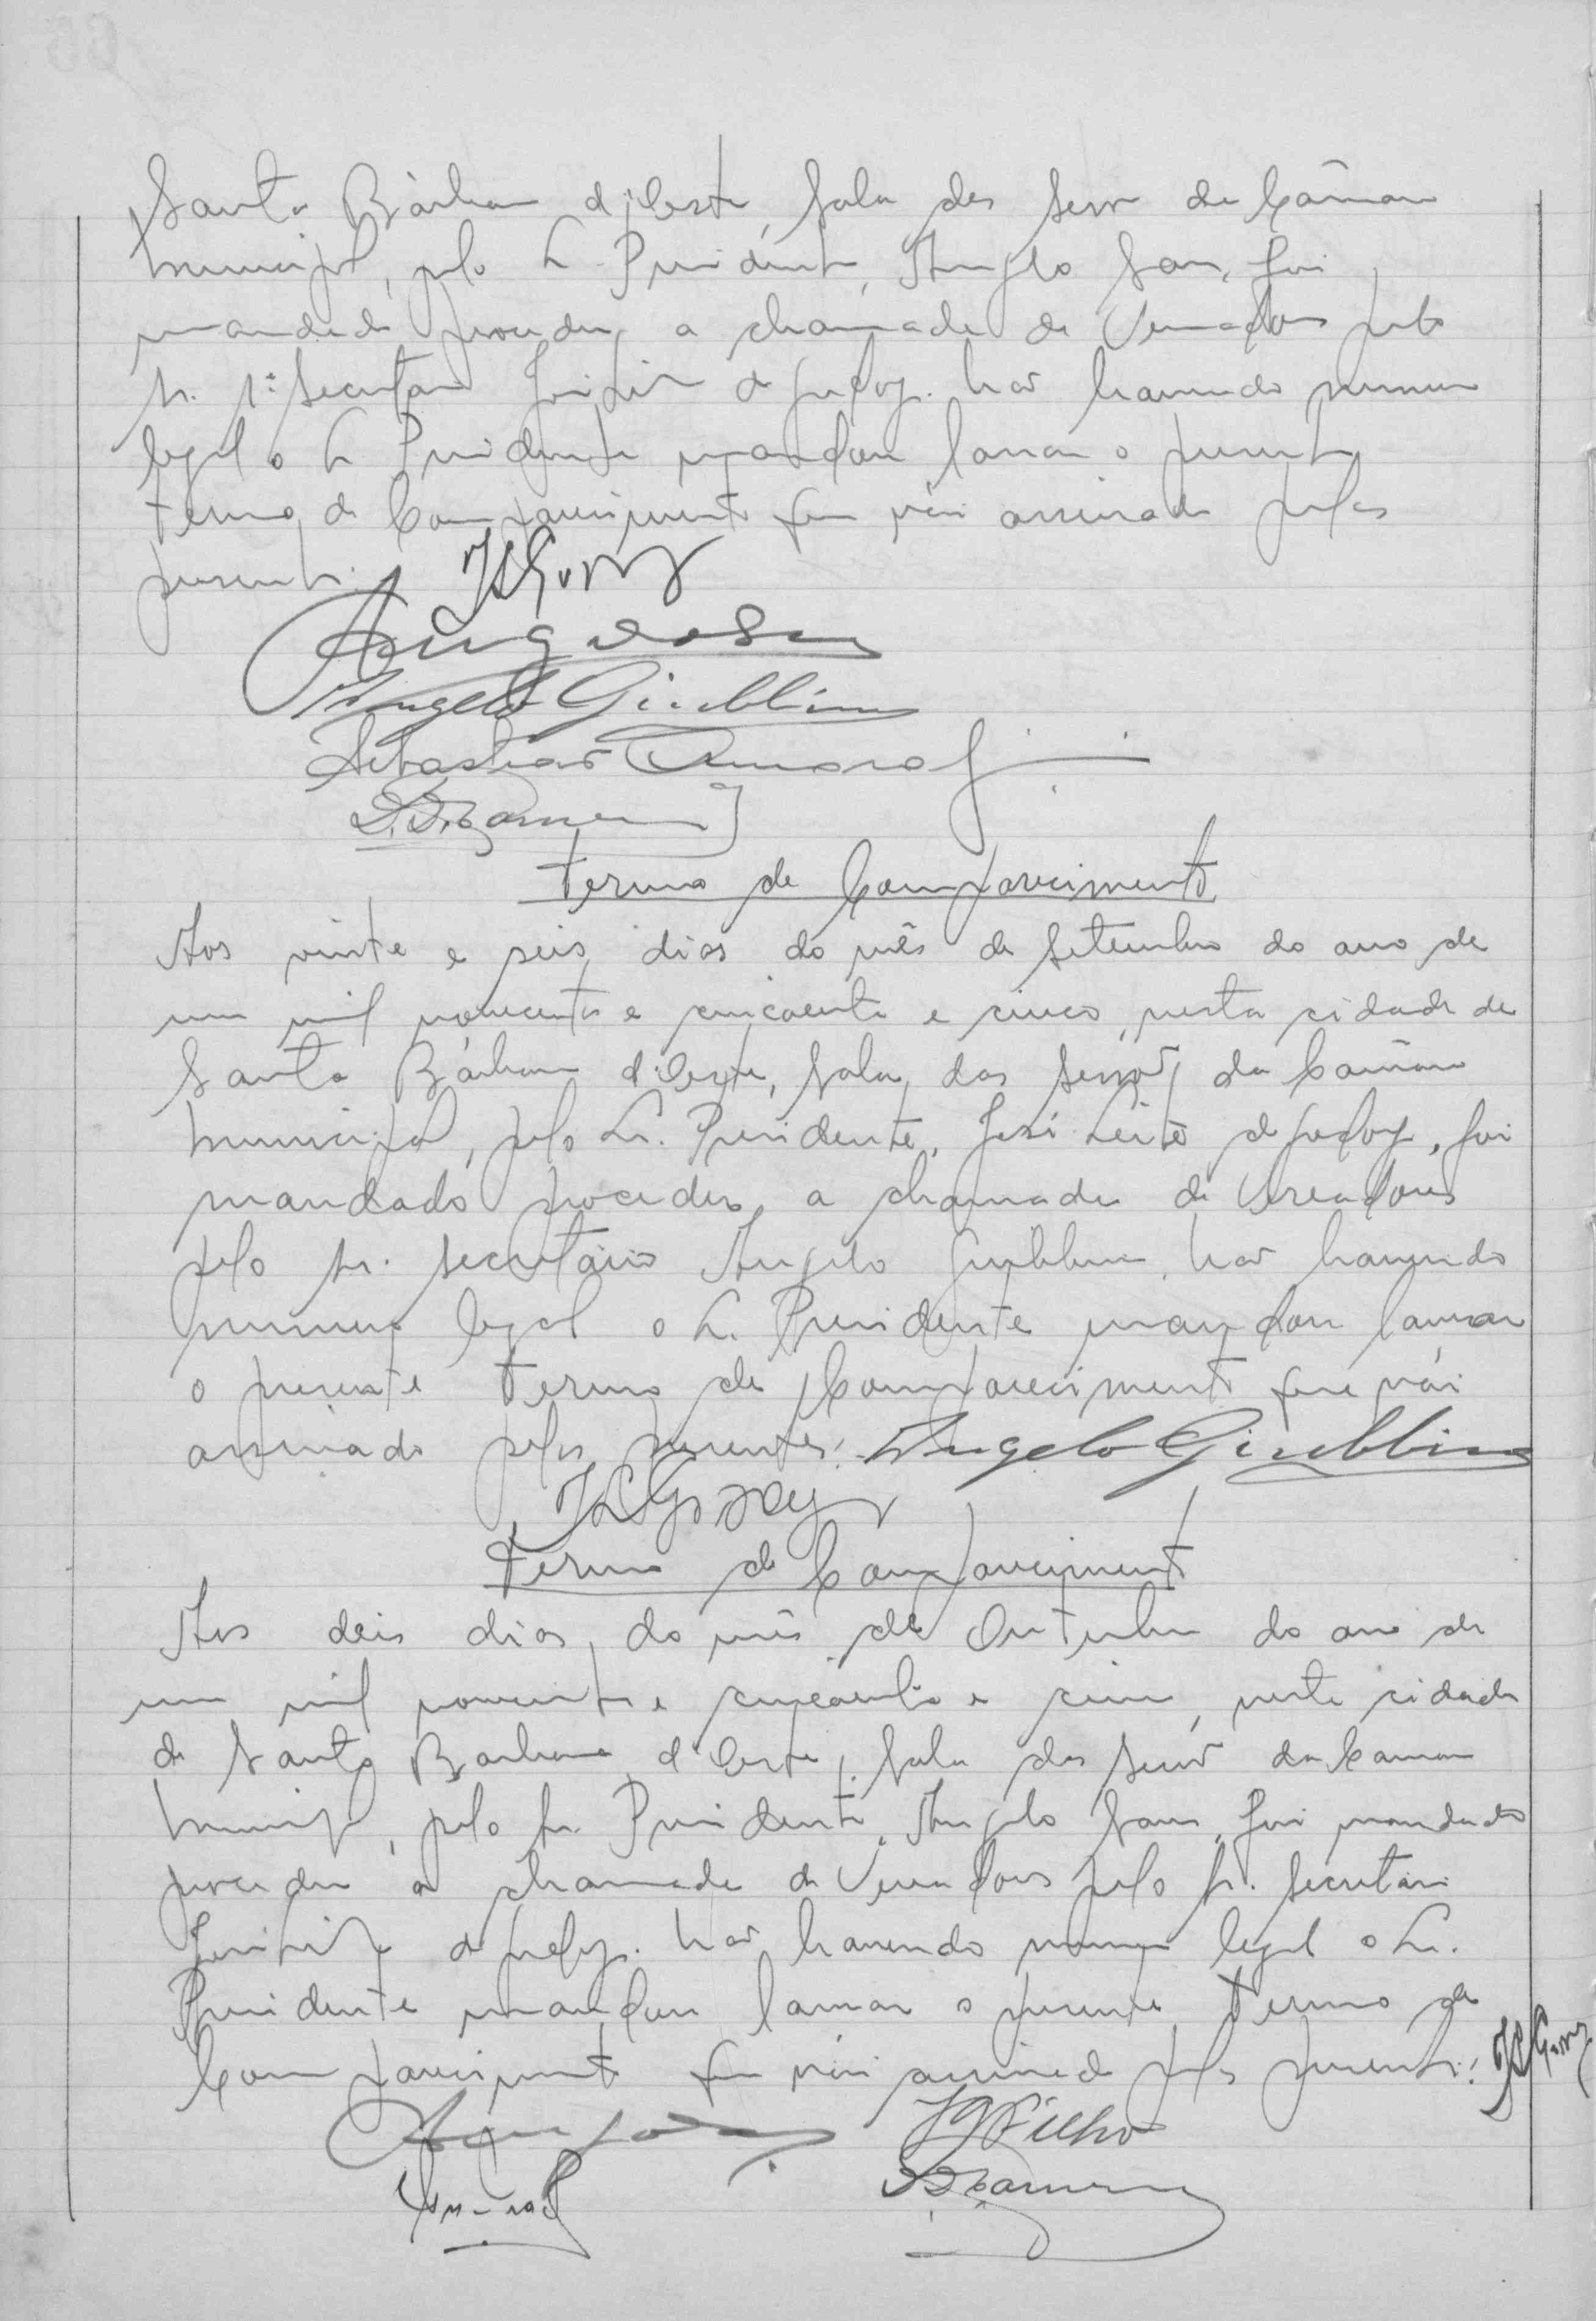 Santa Bárbara d'Oeste, sala das sessões da Câmara
Municipal, pelo Sr. Presidente, Angelo Sans, foi
mandado proceder a chamada de Vereadores pelo
Sr. 1º Secretario José Leite de Godoy. Não havendo numero
legal o Sr. Presidente mandou lavrar o presente
termo de Comparecimento que vai assinado pelos
presentes.
JLGodoy
Angelo Sans
Angelo Giubbina
Sebastião Amaral
Termo de Comparecimento
Aos vinte e seis dias do mês de Setembro do ano de
um mil novecentos e cincoenta e cinco, nesta cidade de
Santa Bárbara d'Oeste, sala das sessões da Câmara
Municipal, pelo Sr. Presidente, José Leite de Godoy, foi
mandado proceder a chamada de Vereadores
pelo Sr. Secretário Angelo Giubbina. Não havendo
numero legal o Sr. Presidente mandou lavrar
o presente termo de Comparecimento que vai
assinado pelos presentes: Angelo Giubbina
JLGodoy
Termo de Comparecimento
Aos dois dias do mês de Outubro do ano de
um mil novecentos e cincoenta e cinco, nesta cidade
de Santa Barbara d'Oeste, sala das sessões da Camara
Municipal, pelo Sr. Presidente, Angelo Sans, foi mandado
proceder a chamada de Vereadores pelo Sr. Secretario
José Leite de Godoy. Não havendo numero legal o Sr.
Presidente mandou lavrar o presente termo de
Comparecimento que vai assinado pelos presentes: JLGodoy
Filho